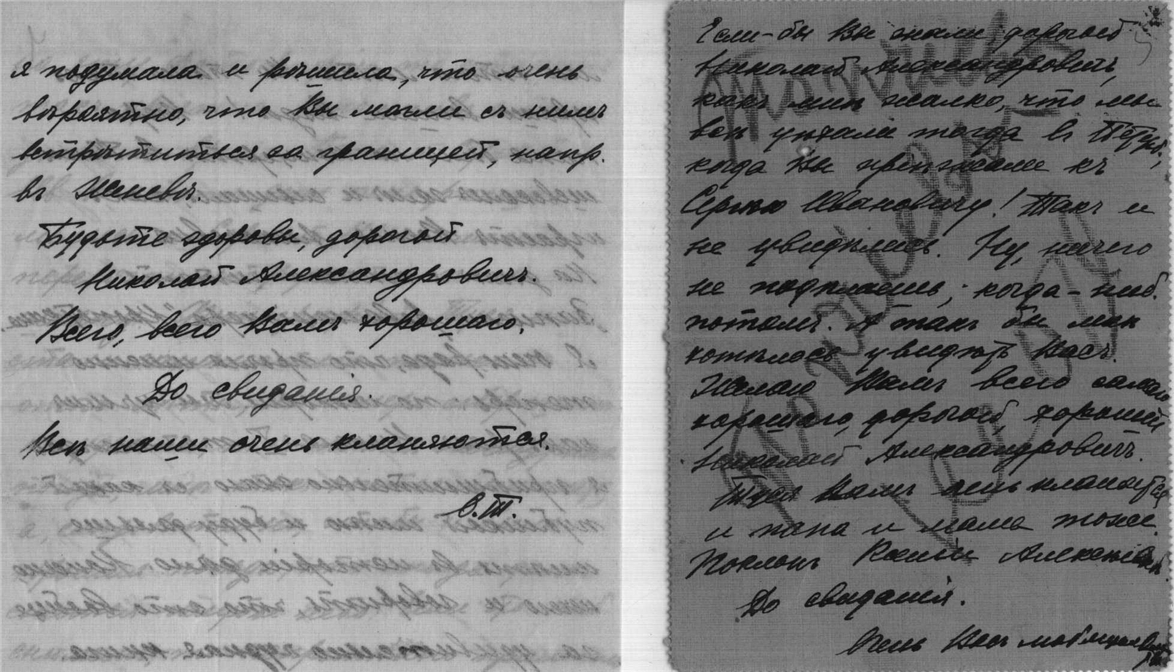 я подумала и рѣшила, что очень
вѣроятно, что Вы могли съ нимъ
встрѣтиться за границей, напр.
въ Женевѣ.
Будьте здоровы, дорогой
Николай Александровичъ.
Всего, всего Вамъ хорошаго.
До свиданія.
Всѣ наши очень кланяются.
О.Т.
Если-бы Вы знали дорогой
Николай Александровичъ,
какъ мнѣ жалко, что мы
всѣ уѣхали тогда въ
когда Вы пріѣзжали къ
Сергѣю Ивановичу! Такъ и
не увидѣлись. Ну, ничего
не подѣлаешь; когда-ниб.
потомъ. А такъ бы мнѣ
хотѣлось увидѣть Васъ.
Желаю Вамъ всего
хорошаго, дорогой, хорошій
Николай Александровичъ.
Вамъ очень
и папа и мама тоже.
Поклонъ
До свиданія.
Очень Васъ